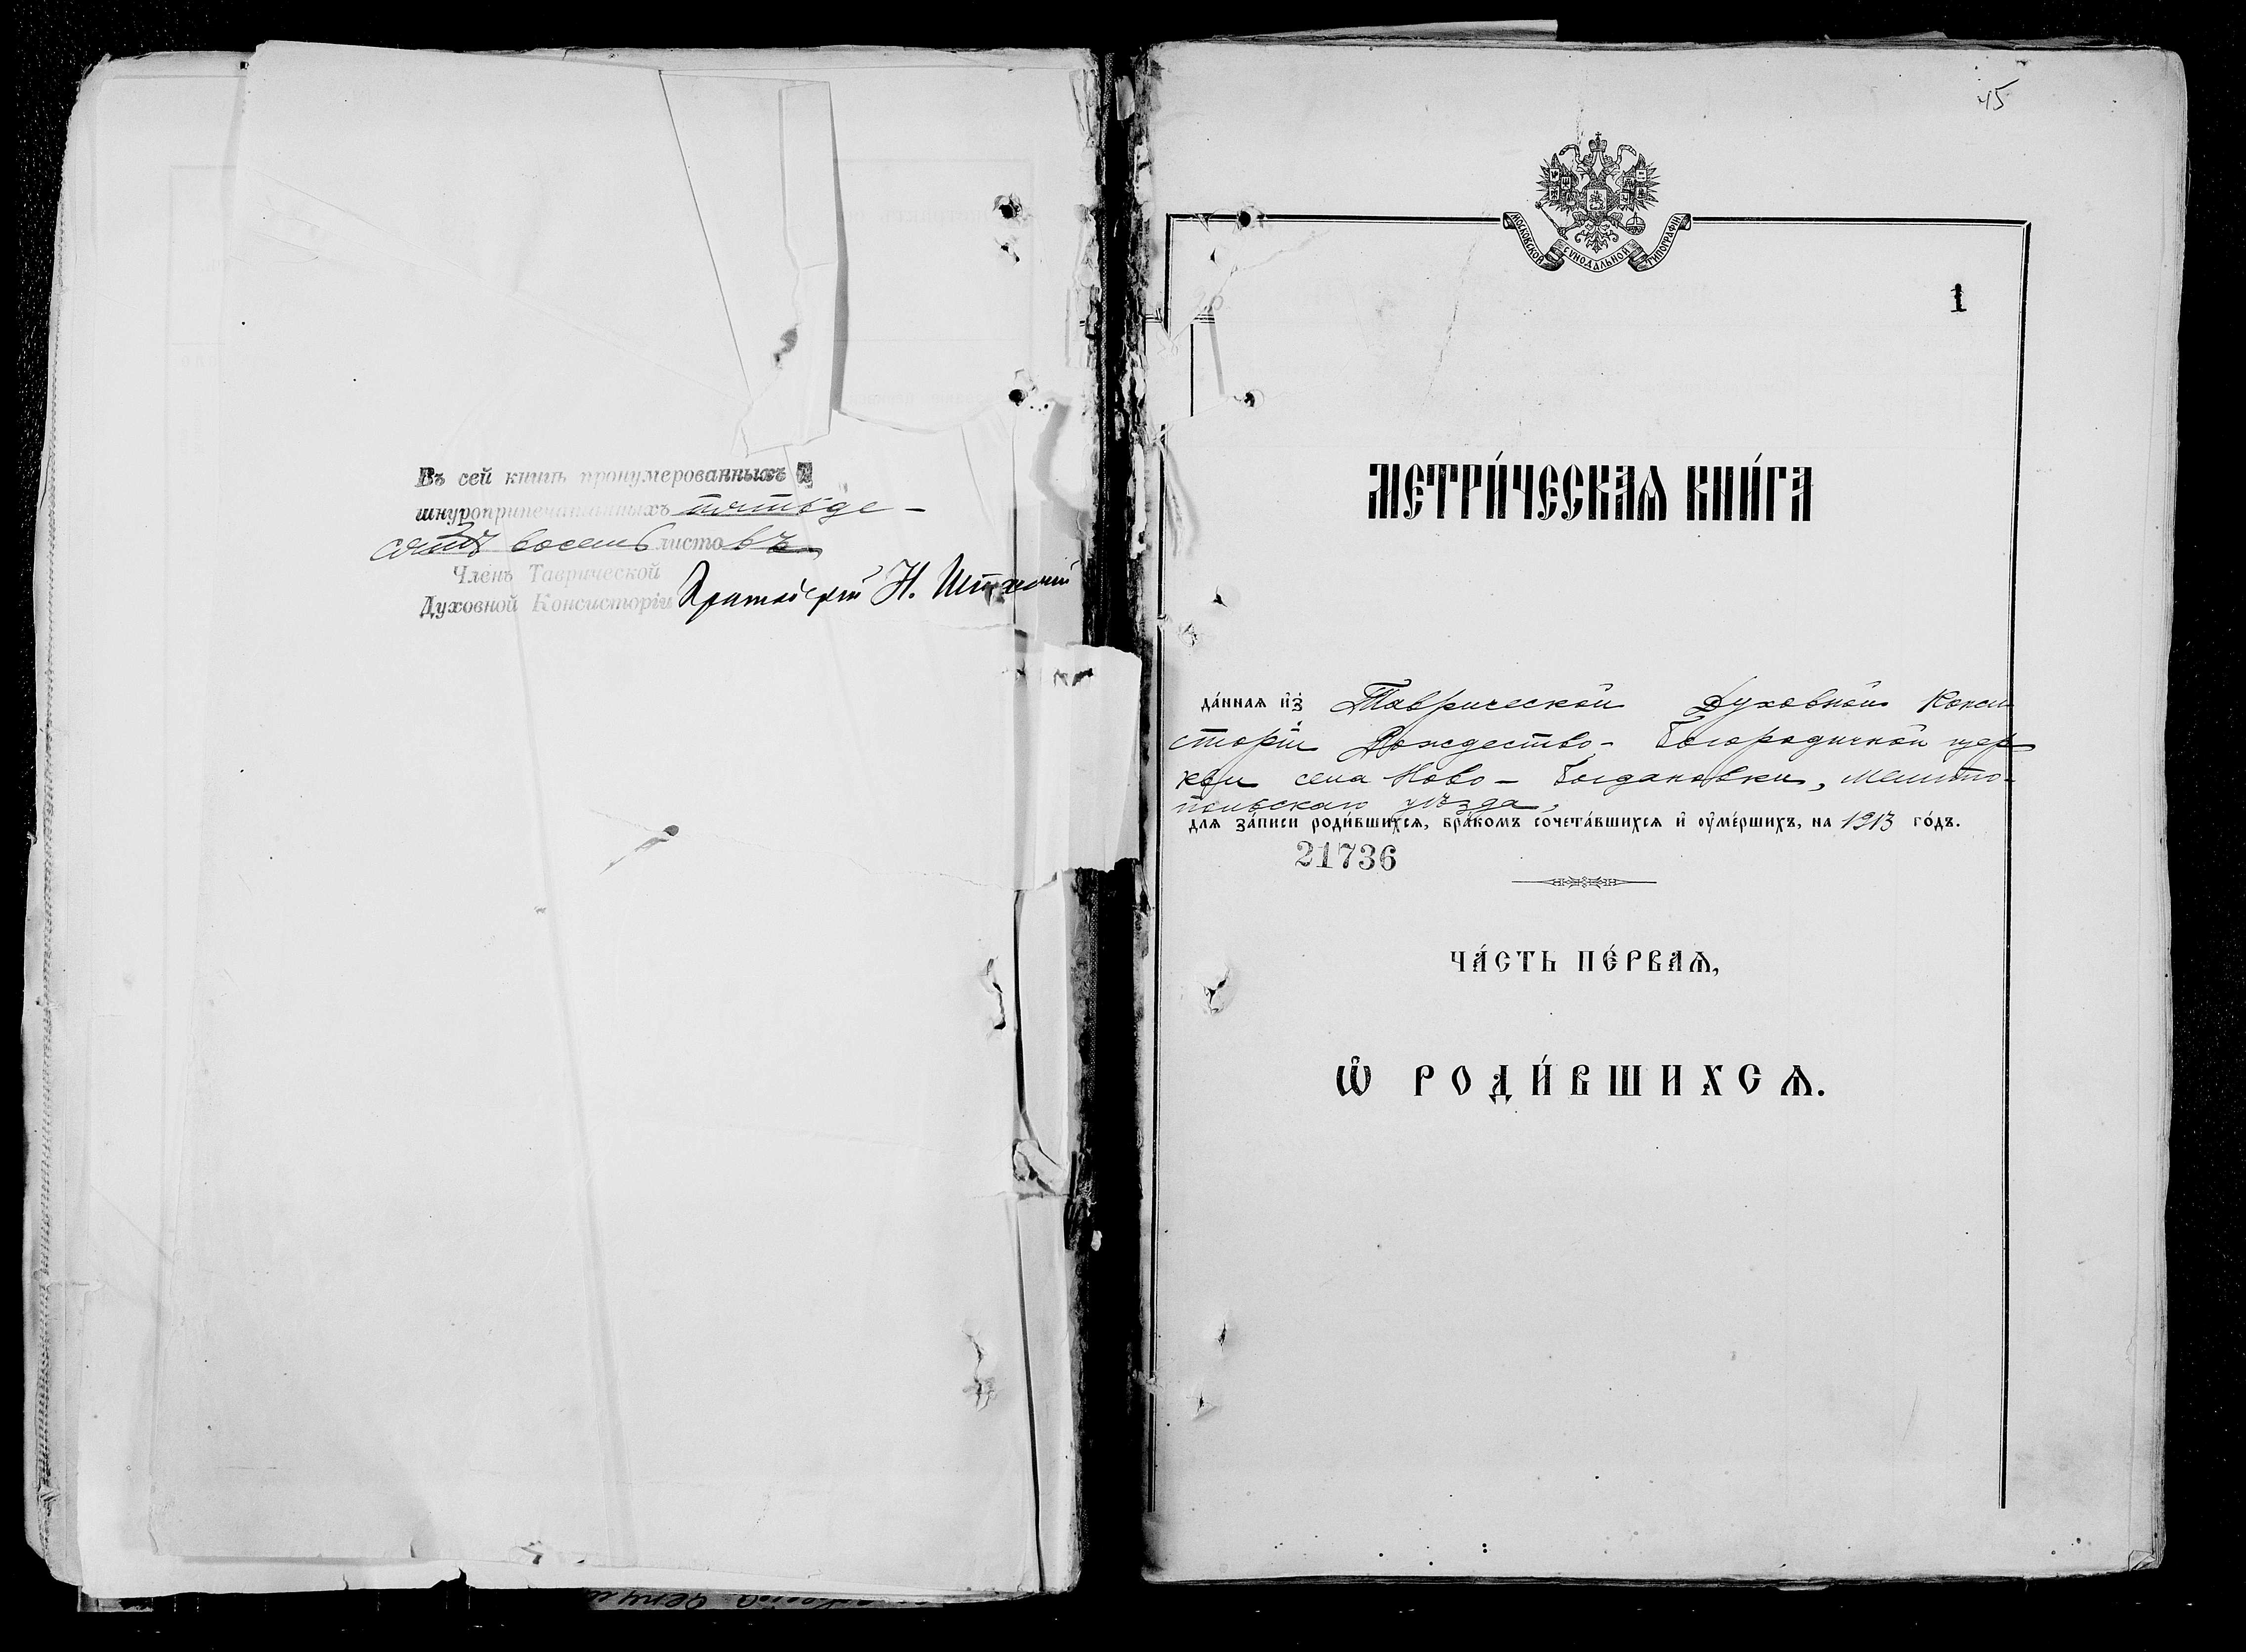 Въ сей книгѣ пронумерованныхъ и
шнуроприпечатанныхъ пятьде-
сятъ восемь листовъ
Членъ Таврической
Духовной Консисторіи Протоіерей Н.
45
МОСКОВСКОЙ СѴНОДАЛЬНОЙ ТИПОГРАФІИ
1
МЕТРИ́ЧЕСКАѦ КНИ́ГА
да́ннаѧ и҆з̾ Таврической Духовной Конси
сторіи Рождество- Богородичной цер
кви села Ново- Богдановки, Мелито-
польскаго уѣзда,
для за́писи роди́вшихсѧ, бра́комъ сочета́вшихсѧ и҆ оу҆ме́ршихъ, на 1913 го́дъ.
21736
ЧА́СТЬ ПЕ́РВАѦ,
Ѽ РОДИ́ВШИХСѦ.